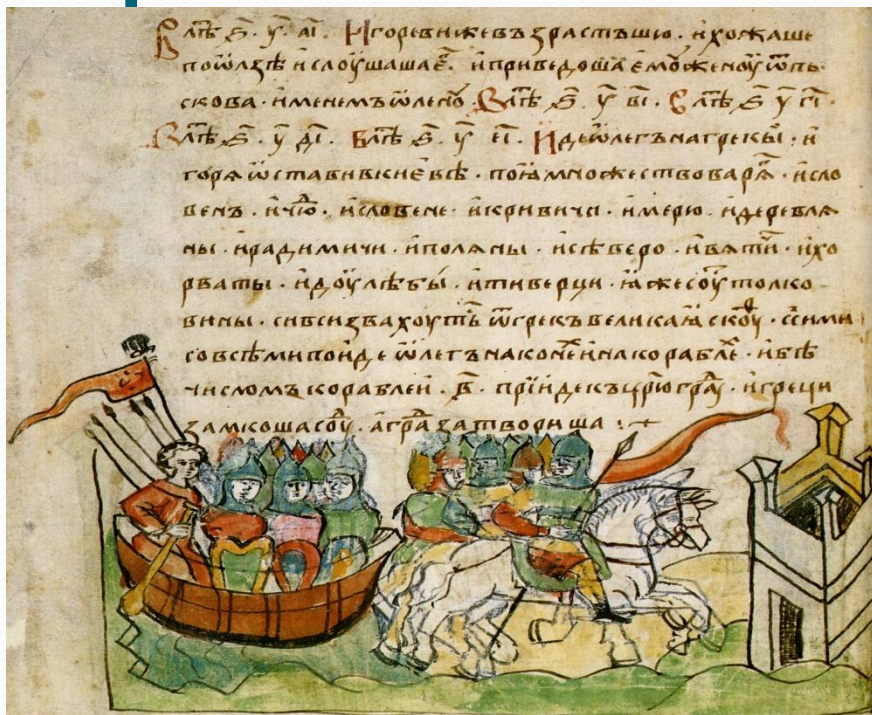 В лѣт҃ ҂ѕ҃. у҃. аі҃. Игоревижевъзрастъшю. ихожаше
поѡлзѣ ислоушашаеⷢ. иприведошаемꙋженоуѿпь
скова. именемъѡленꙋ. В лѣт҃ ҂ѕ҃ у҃ ві҃. В лѣт҃ ҂ѕ҃ у҃ гі҃.
В лѣт҃ ҂ѕ҃ у҃ ді҃. В лѣт҃ ҂ѕ҃ у҃ еі҃. Идеѡлегънагрекы. и
горѧѡставивкиевѣ. поꙗмножествовараⷤ. исло
венъ. ичюⷣ. исловене. икривичи. имерю. идеревлѧ
ны. ирадимичи. иполѧны. исѣверо. ивѧтиⷱ. ихо
рваты. идоулѣбы. итиверци. ꙗжесоутолко
вины. сивсизвахоутьⷭ ѿгрекъвеликаꙗскоуⷴ. ссими
совсѣмипоидеѡлегънаконеинакорабле. ибѣ
числомъкораблеи. в҃. прїидекъцр҃юграⷣ. игреци
замкошасоуⷣ. аграⷣзатвориша :+